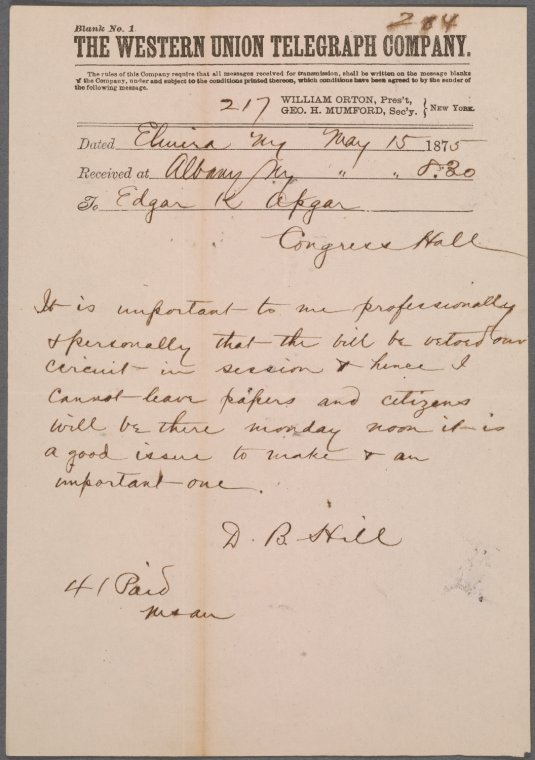 284
Blank No. 1.
THE WESTERN UNION TELEGRAPH COMPANY.
The rules of this Company require that all messages received for transmission, shall be written on the message blanks
of the Company, under and subject to the conditions printed thereon, which conditions have been agreed to by the sender of
the following message.
217 WILLIAM ORTON, Pres't,
GEO. H. MUMFORD, Sec'y. } NEW YORK.
Dated Elmira Ny May 15 1875
Received at Albany Ny " " 8.30
To Edgar K Apgar
Congress Hall
It is important to me professionally
& personally that the bill be vetoed our
circuit in session & hence I
cannot leave papers and citizens
will be there monday noon it is
a good issue to make & an
important one.
D. B. Hill
41 Paid